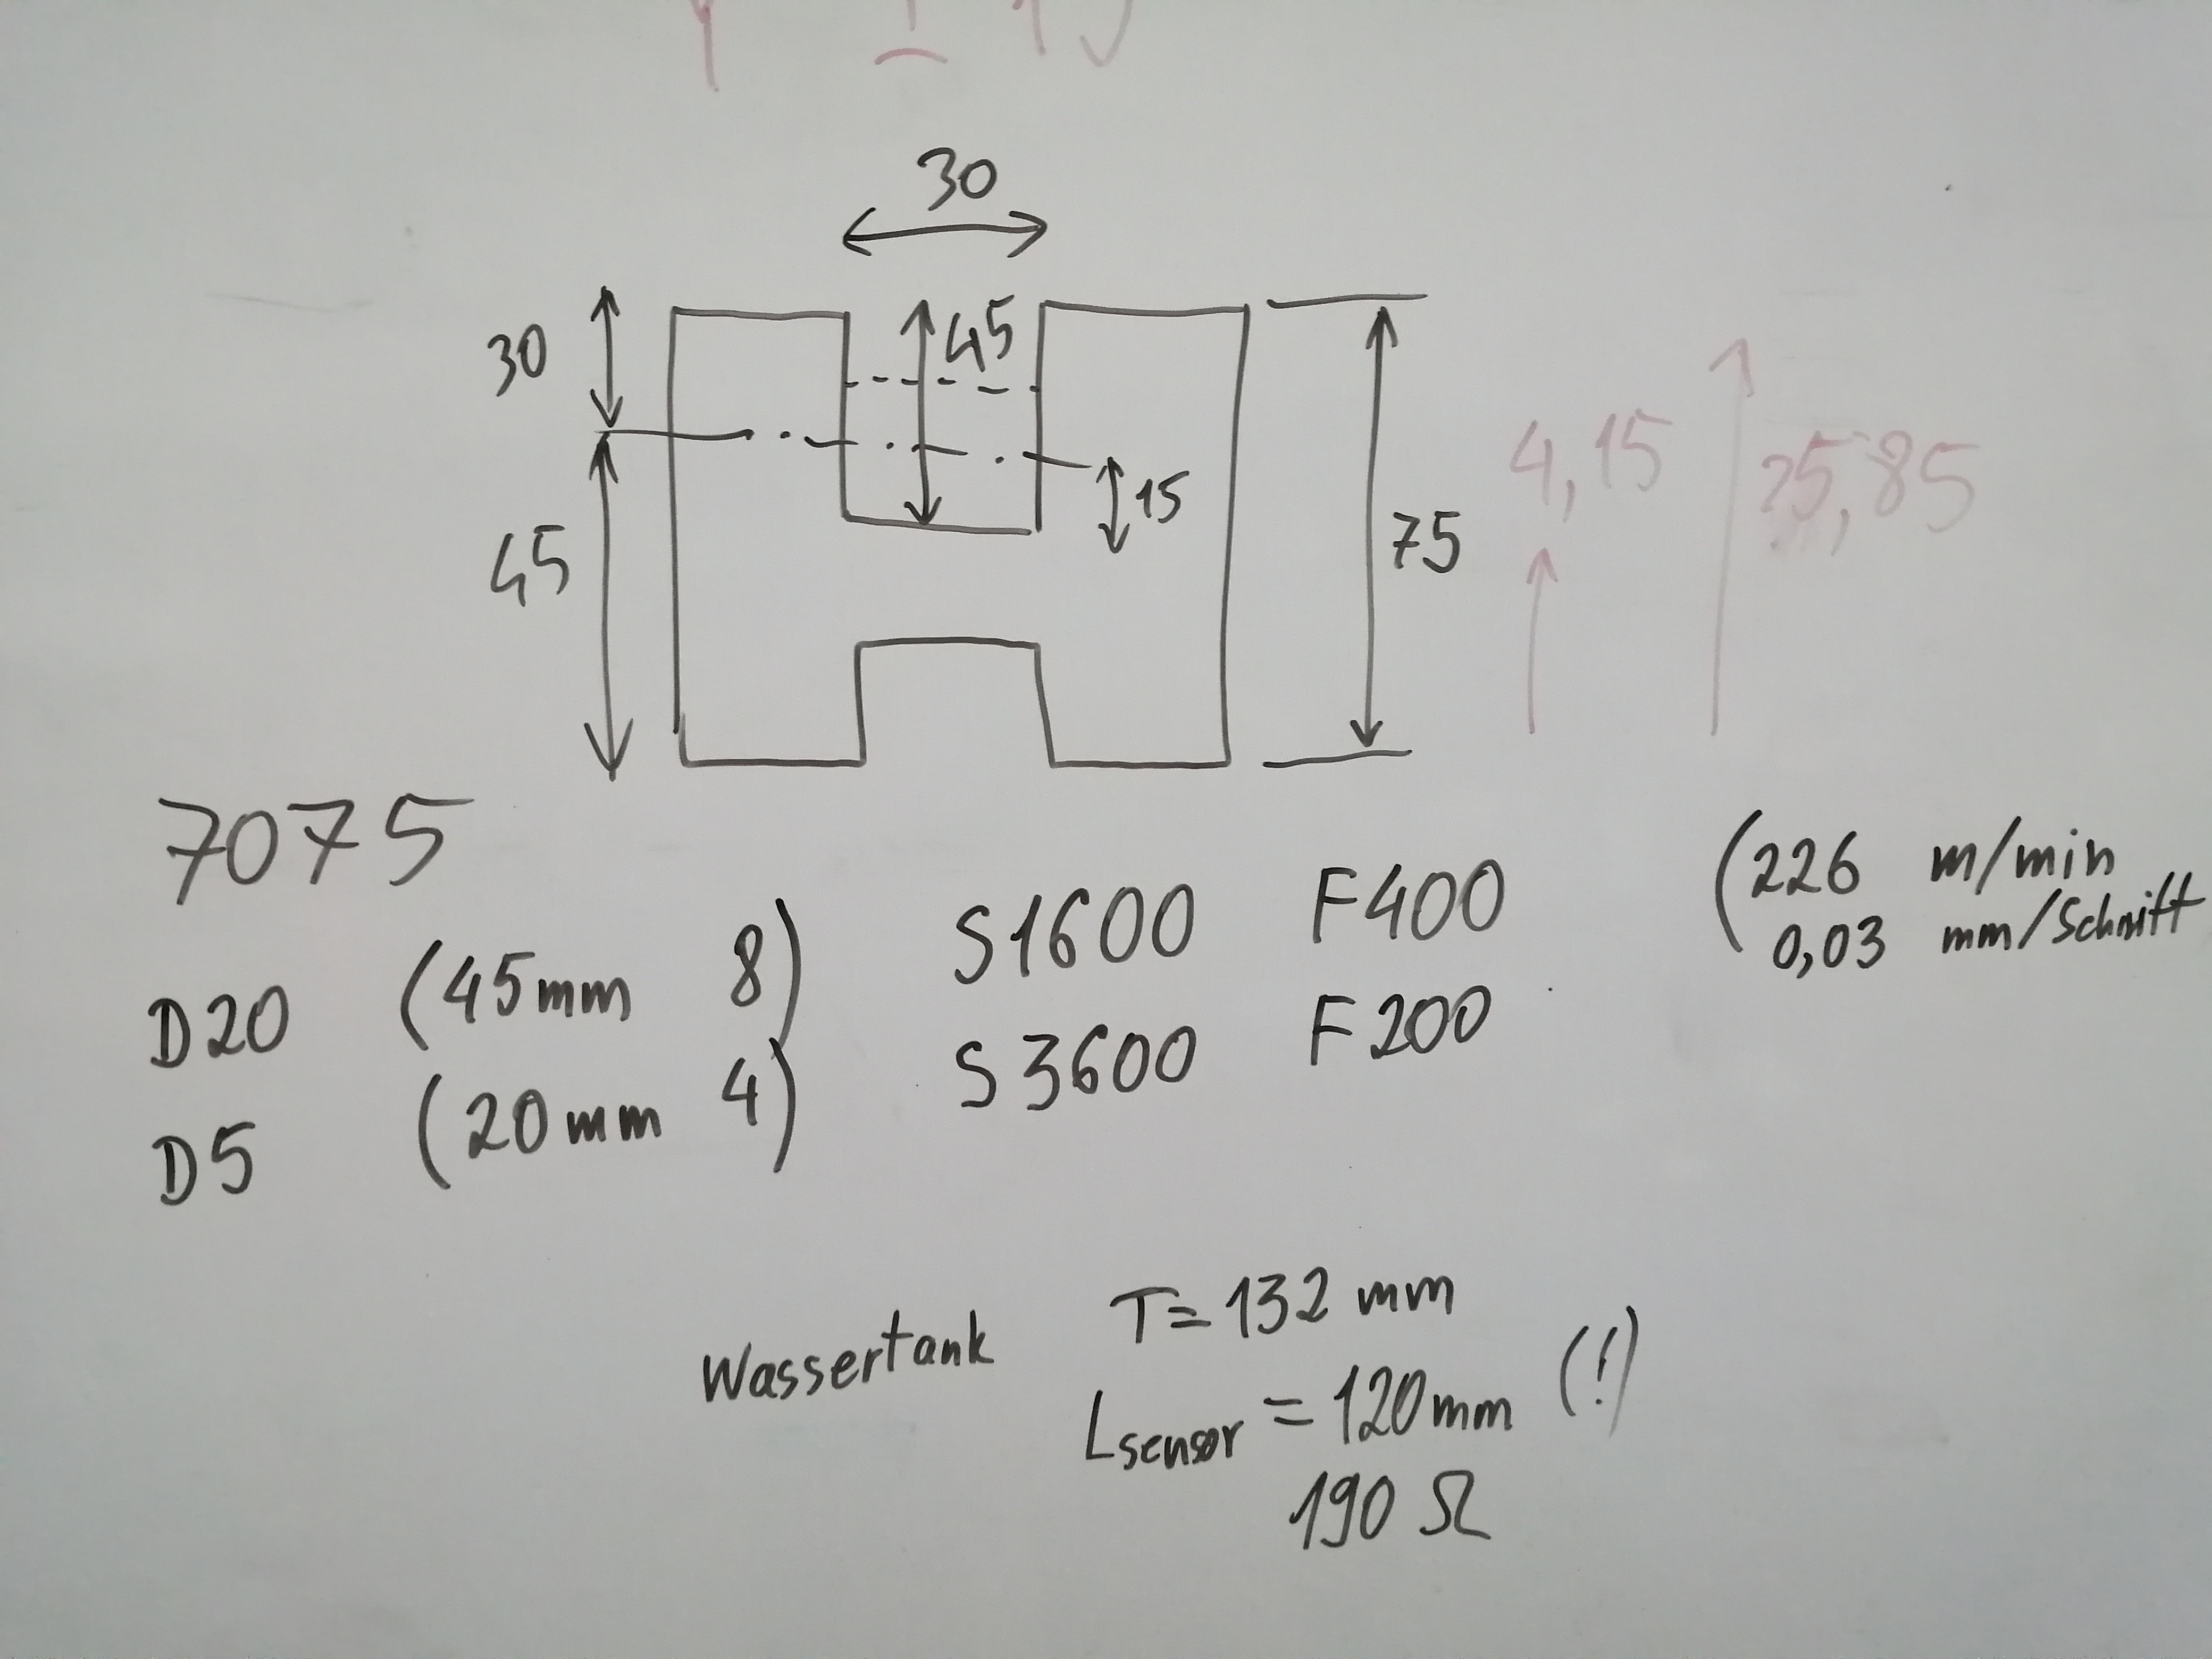 30
30
45
15
45
75
4,15
25,85
7075
D20 (45mm 8) S1600 F400 (226 m/min
0,03 mm/Schnitt
D5 (20mm 4) S3600 F200
Wassertank T=132 mm
Lsensor = 120mm (!)
190 Ω